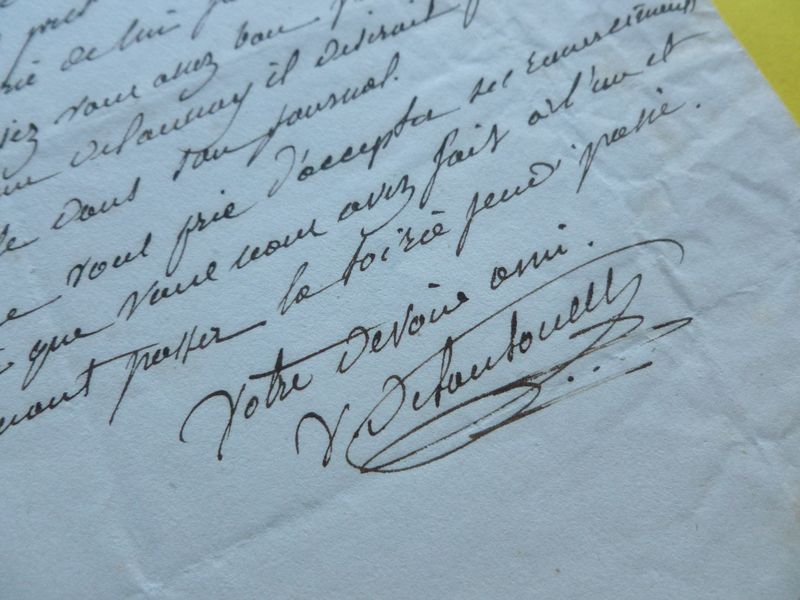 pres
prié de lui
vous assez bon
Delaunay il désirait
dans son journal.
vous prie d'accepter ses remerciements
que vous nous avez fait à l'un et
passer la soirée jeudi passé.
Votre dévoué ami.
V Defontouell